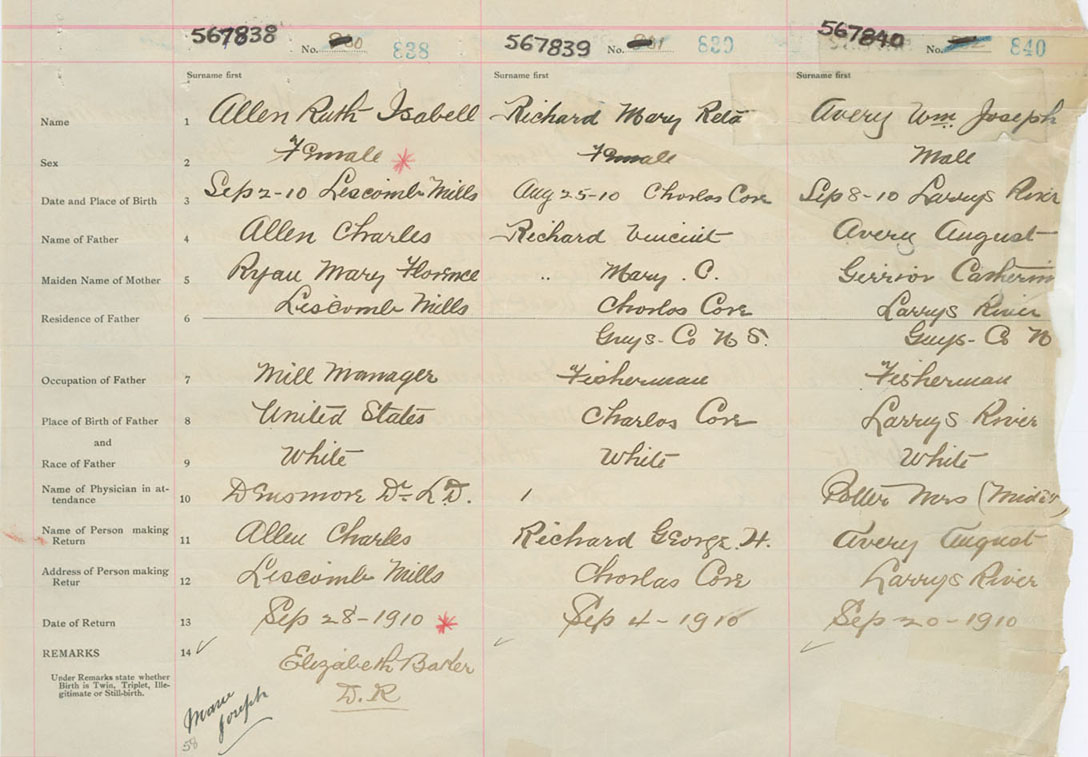 567838 No. 838 567839 No. 839 567840 No. 840
Surname first Surname first Surname first
Name 1 Allen Ruth Isabell Richard Mary Reta Avery Wm. Joseph
Sex 2 Female Female Male
Date and Place of Birth 3 Sep 2-10 Liscomb Mills Aug 25-10 Charlos Cove Sep 8-10 Larrys River
Name of Father 4 Allen Charles Richard Vincint Avery August
Maiden Name of Mother 5 Ryan Mary Florence " Mary . C. Gerrior Catherin
Residence of Father 6 Liscomb Mills Charlos Cove Larrys River
Guys- Co N S. Guys- Co N
Occupation of Father 7 Mill Manager Fisherman Fisherman
Place of Birth of Father 8 United States Charlos Cove Larrys River
and
Race of Father 9 White White White
Name of Physician in at-
tendance 10 Densmore Dr L.D. Mrs
Name of Person making
Return 11 Allen Charles Richard George. H. Avery August
Address of Person making
Retur 12 Liscomb Mills Charlos Cove Larrys River
Date of Return 13 Sep 28-1910 Sep 4-1910 Sep 20-1910
REMARKS 14 Elizabeth
Under Remarks state whether
Birth is Twin, Triplet, Ille-
gitimate or Still-birth.
D.R
Joseph
58